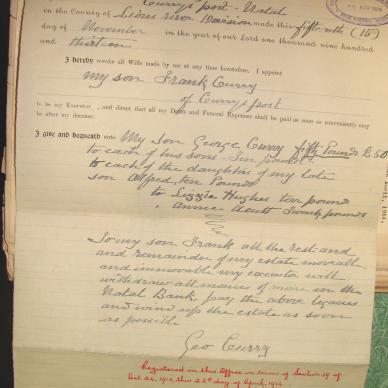 Currys post - Natal
in the County of Lions River Division made this fifteenth (15)
day of November in the year of our Lord one thousand nine hundred
and thirteen
I hereby revoke all Wills made by me at any time heretofore. I appoint
my son Frank Curry
of Currys post
to be my Executor, and direct that all my Debts and Funeral Expenses shall be paid as soon as conveniently may
be after my decease.
I give and bequeath unto My Son George Curry fifty Pounds £50
to each of his sons ten pounds
to each of the daughters of my late
son Alfred, ten Pounds
to Lizzie Hughes ten pound
Annie twenty pounds
To my son Frank all the rest and
and remainder of my estate moveable
and immovable my executor will
withdraw all monies of mine in the
Natal Bank pay the above legacies
and wind up the estate as soon
as possible
Geo Curry
Registered in this Office in terms of Section 19 of
Act 24, 1913, this 22nd day of April, 1914